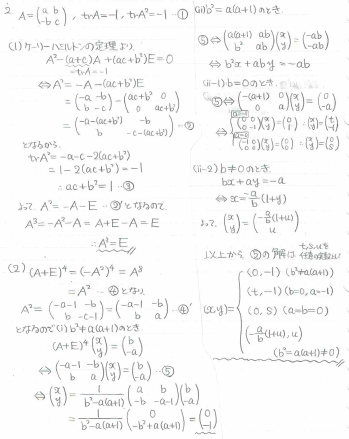 2 A=(a b
-b c), trA=-1, trA²=-1 -①
(1) ケーリーハミルトンの定理より
A²-(a+c)A+(ac+b²)E=0
=trA=-1
⇔ A²=-A-(ac+b²)E
=(-a -b
b -c)-(ac+b² 0
0 ac+b²)
=(-a-(ac+b²) -b
b -c-(ac+b²)) -②
となるから、
trA²=-a-c-2(ac+b²)
=1-2(ac+b²)=-1
∴ ac+b²=1 -③
よって A²=-A-E -②'となるので、
A³=-A²-A=A+E-A=E
∴A³=E
(2) (A+E)⁴=(-A²)⁴=A⁸
=A² -④となり
A²=(-a-1 -b
b -c-1)=(-a-1 -b
b a) -④'
となるので(i) b²≠a(a+1)のとき
(A+E)⁴(x
y)=(b
-a)
⇔(-a-1 -b
b a)(x
y)=(b
-a) -⑤
⇔(x
y)=1/(b²-a(a+1)) (a b
-b -a-1)(b
-a)
=1/(b²-a(a+1)) (0
-b²+a(a+1))=(0
-1)
(ii) b²=a(a+1)のとき、
⑤⇔(a(a+1) ab
b² ab)(x
y)=(-ab
-ab)
⇔ b²x+aby=-ab
(ii-1) b=0のとき、
⑤⇔(-(a+1) 0
0 a)(x
y)=(0
-a)
(ii-2) b≠0のとき
bx+ay=-a
⇔x=-a/b(1+y)
よって、(x
y)=(-a/b(1+u)
u)
以上から ⑤の解は
(x,y)=
(0,-1) (b²≠a(a+1))
(t,-1) (b=0,a=-1)
(0,s) (a=b=0)
(-a/b(1+u),u)
(b²=a(a+1)≠0)